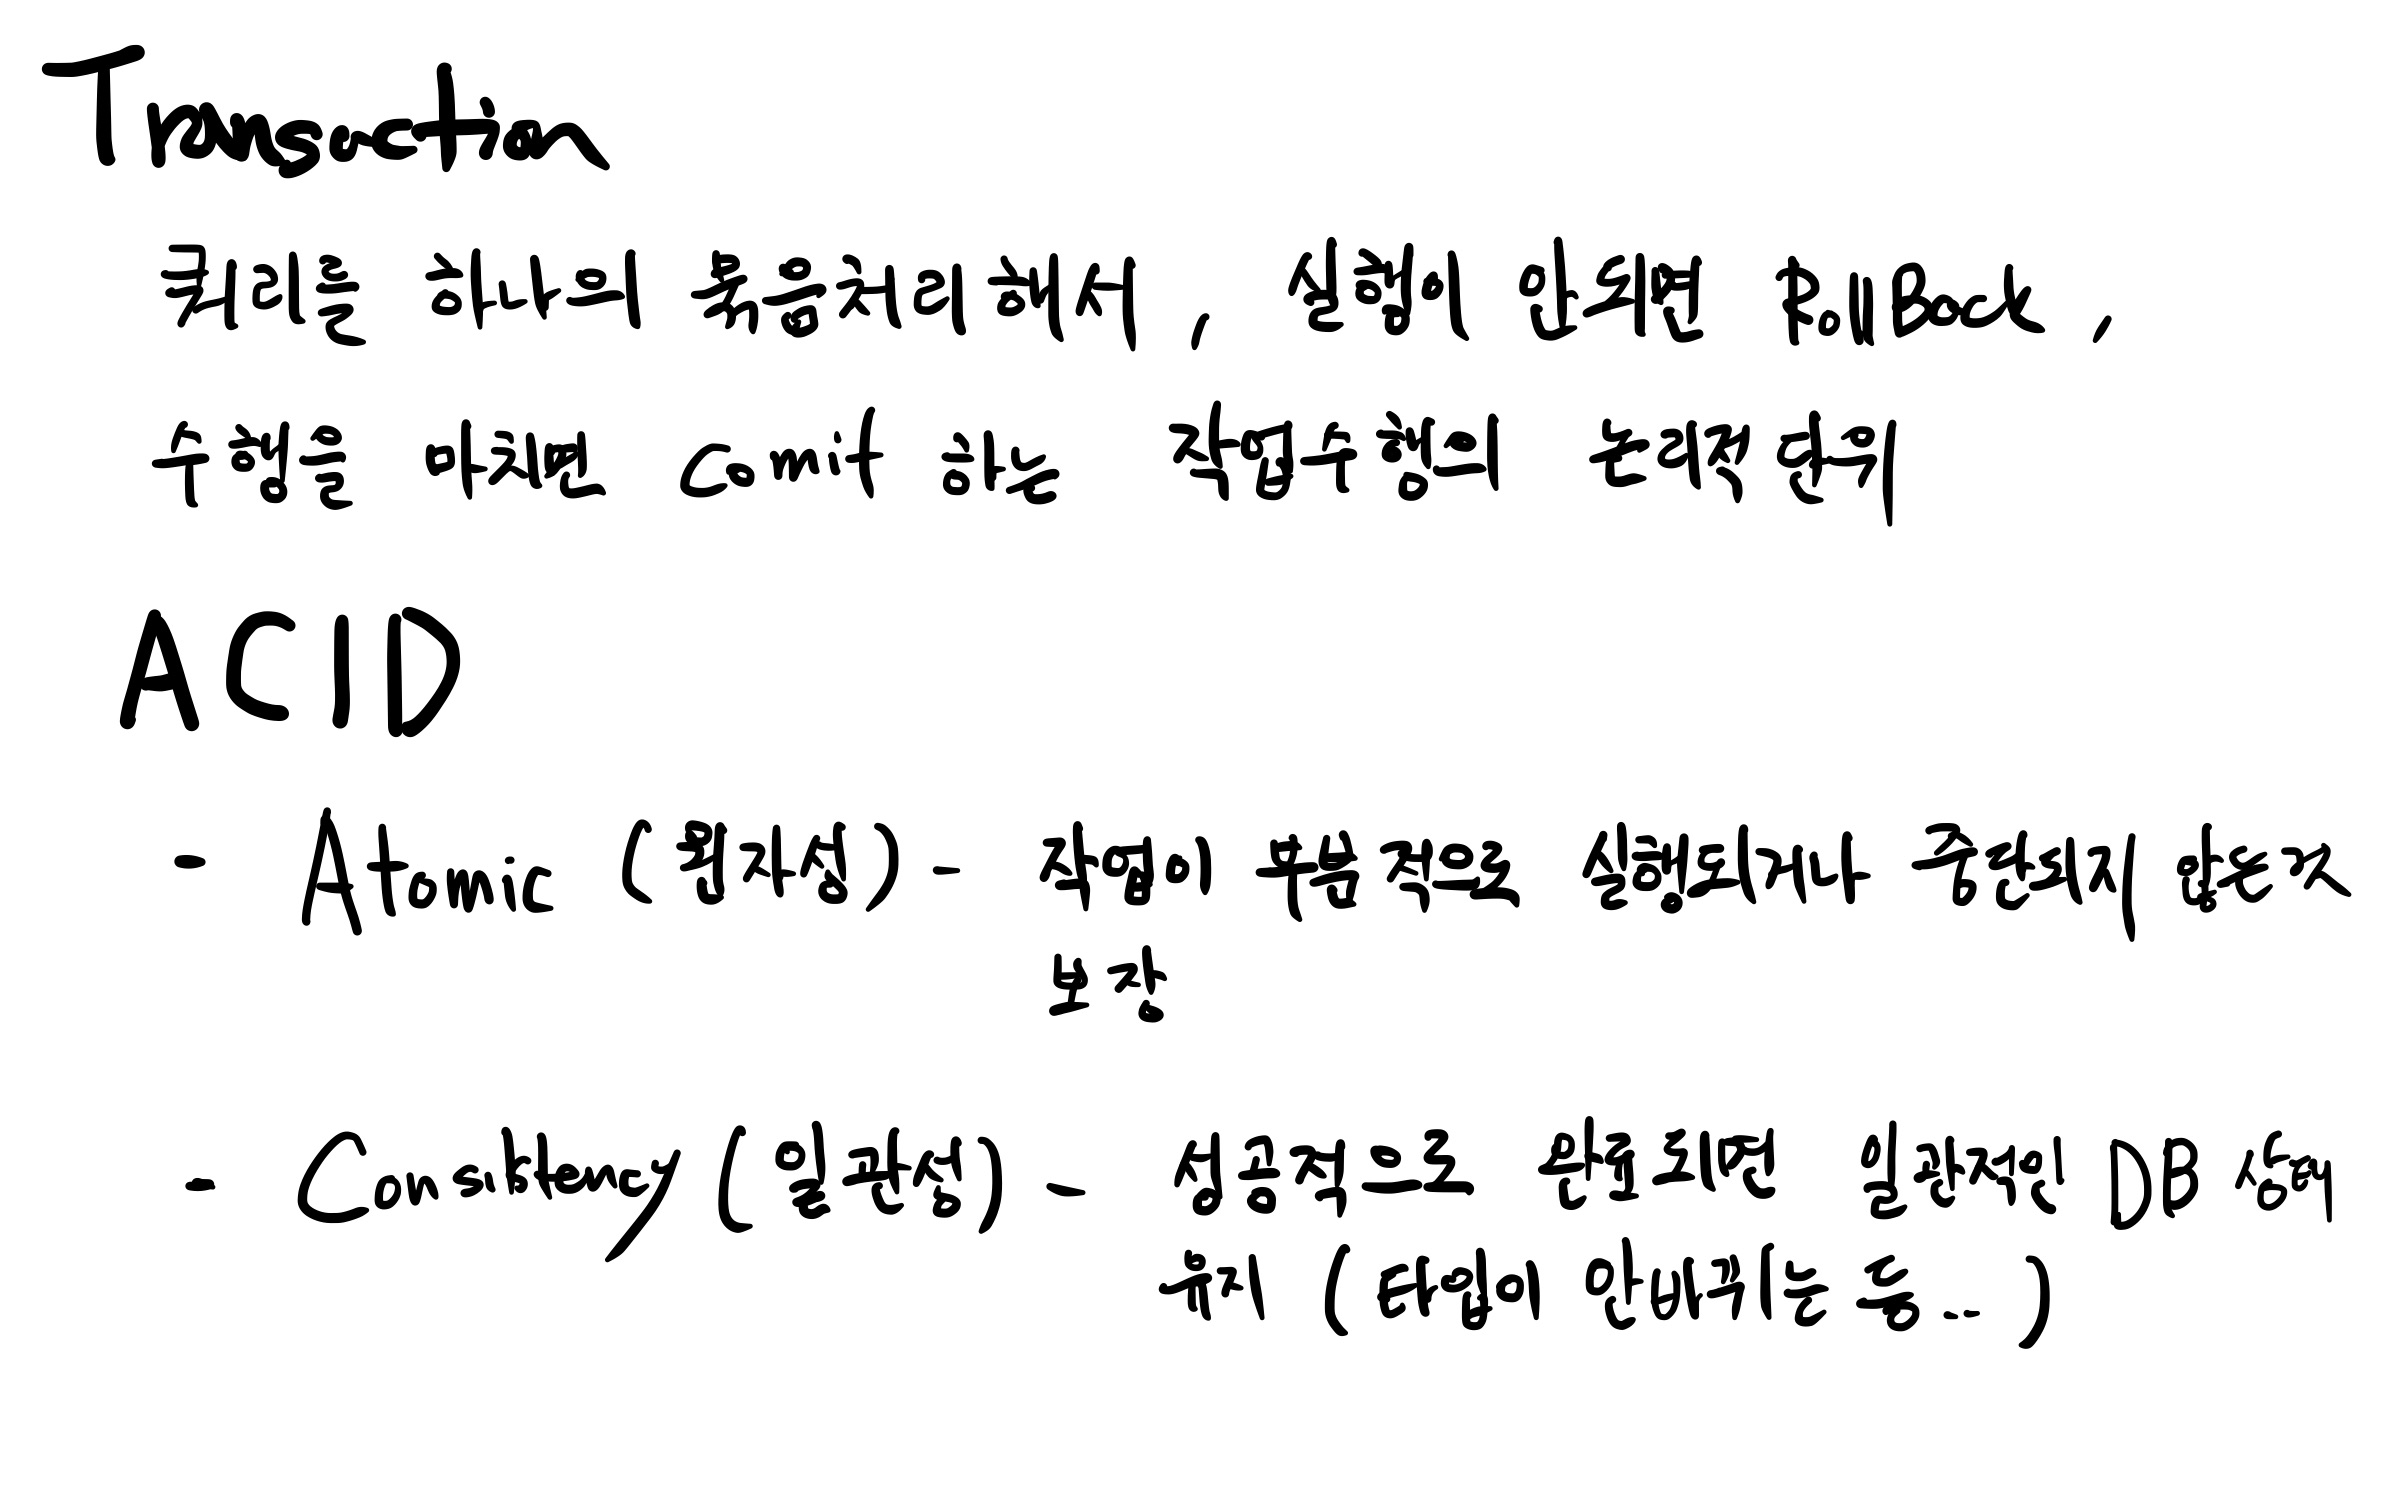 Transaction
쿼리를 하나의 묶음처리해서, 실행이 안되면 RollBack,
수행을 마치면 Comit 하는 작업수행의 논리적 단위
ACID
- Atomic (원자성) - 작업이 부분적으로 실행되거나 중단되지 않는것
보장
- Consistency (일관성) - 성공적으로 완료되면 일관적인 DB 상태
유지 (타입이 안바뀌는 등..)